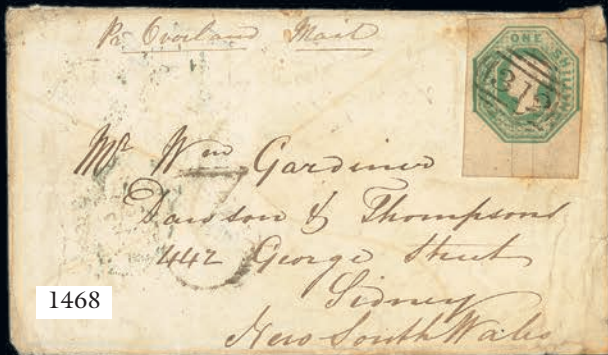 Pr Overland Mail
ONE SHILLING
Mr Wm Gardiner
Dawson & Thompsons
442 George Street
Sidney
New South Wales
1468